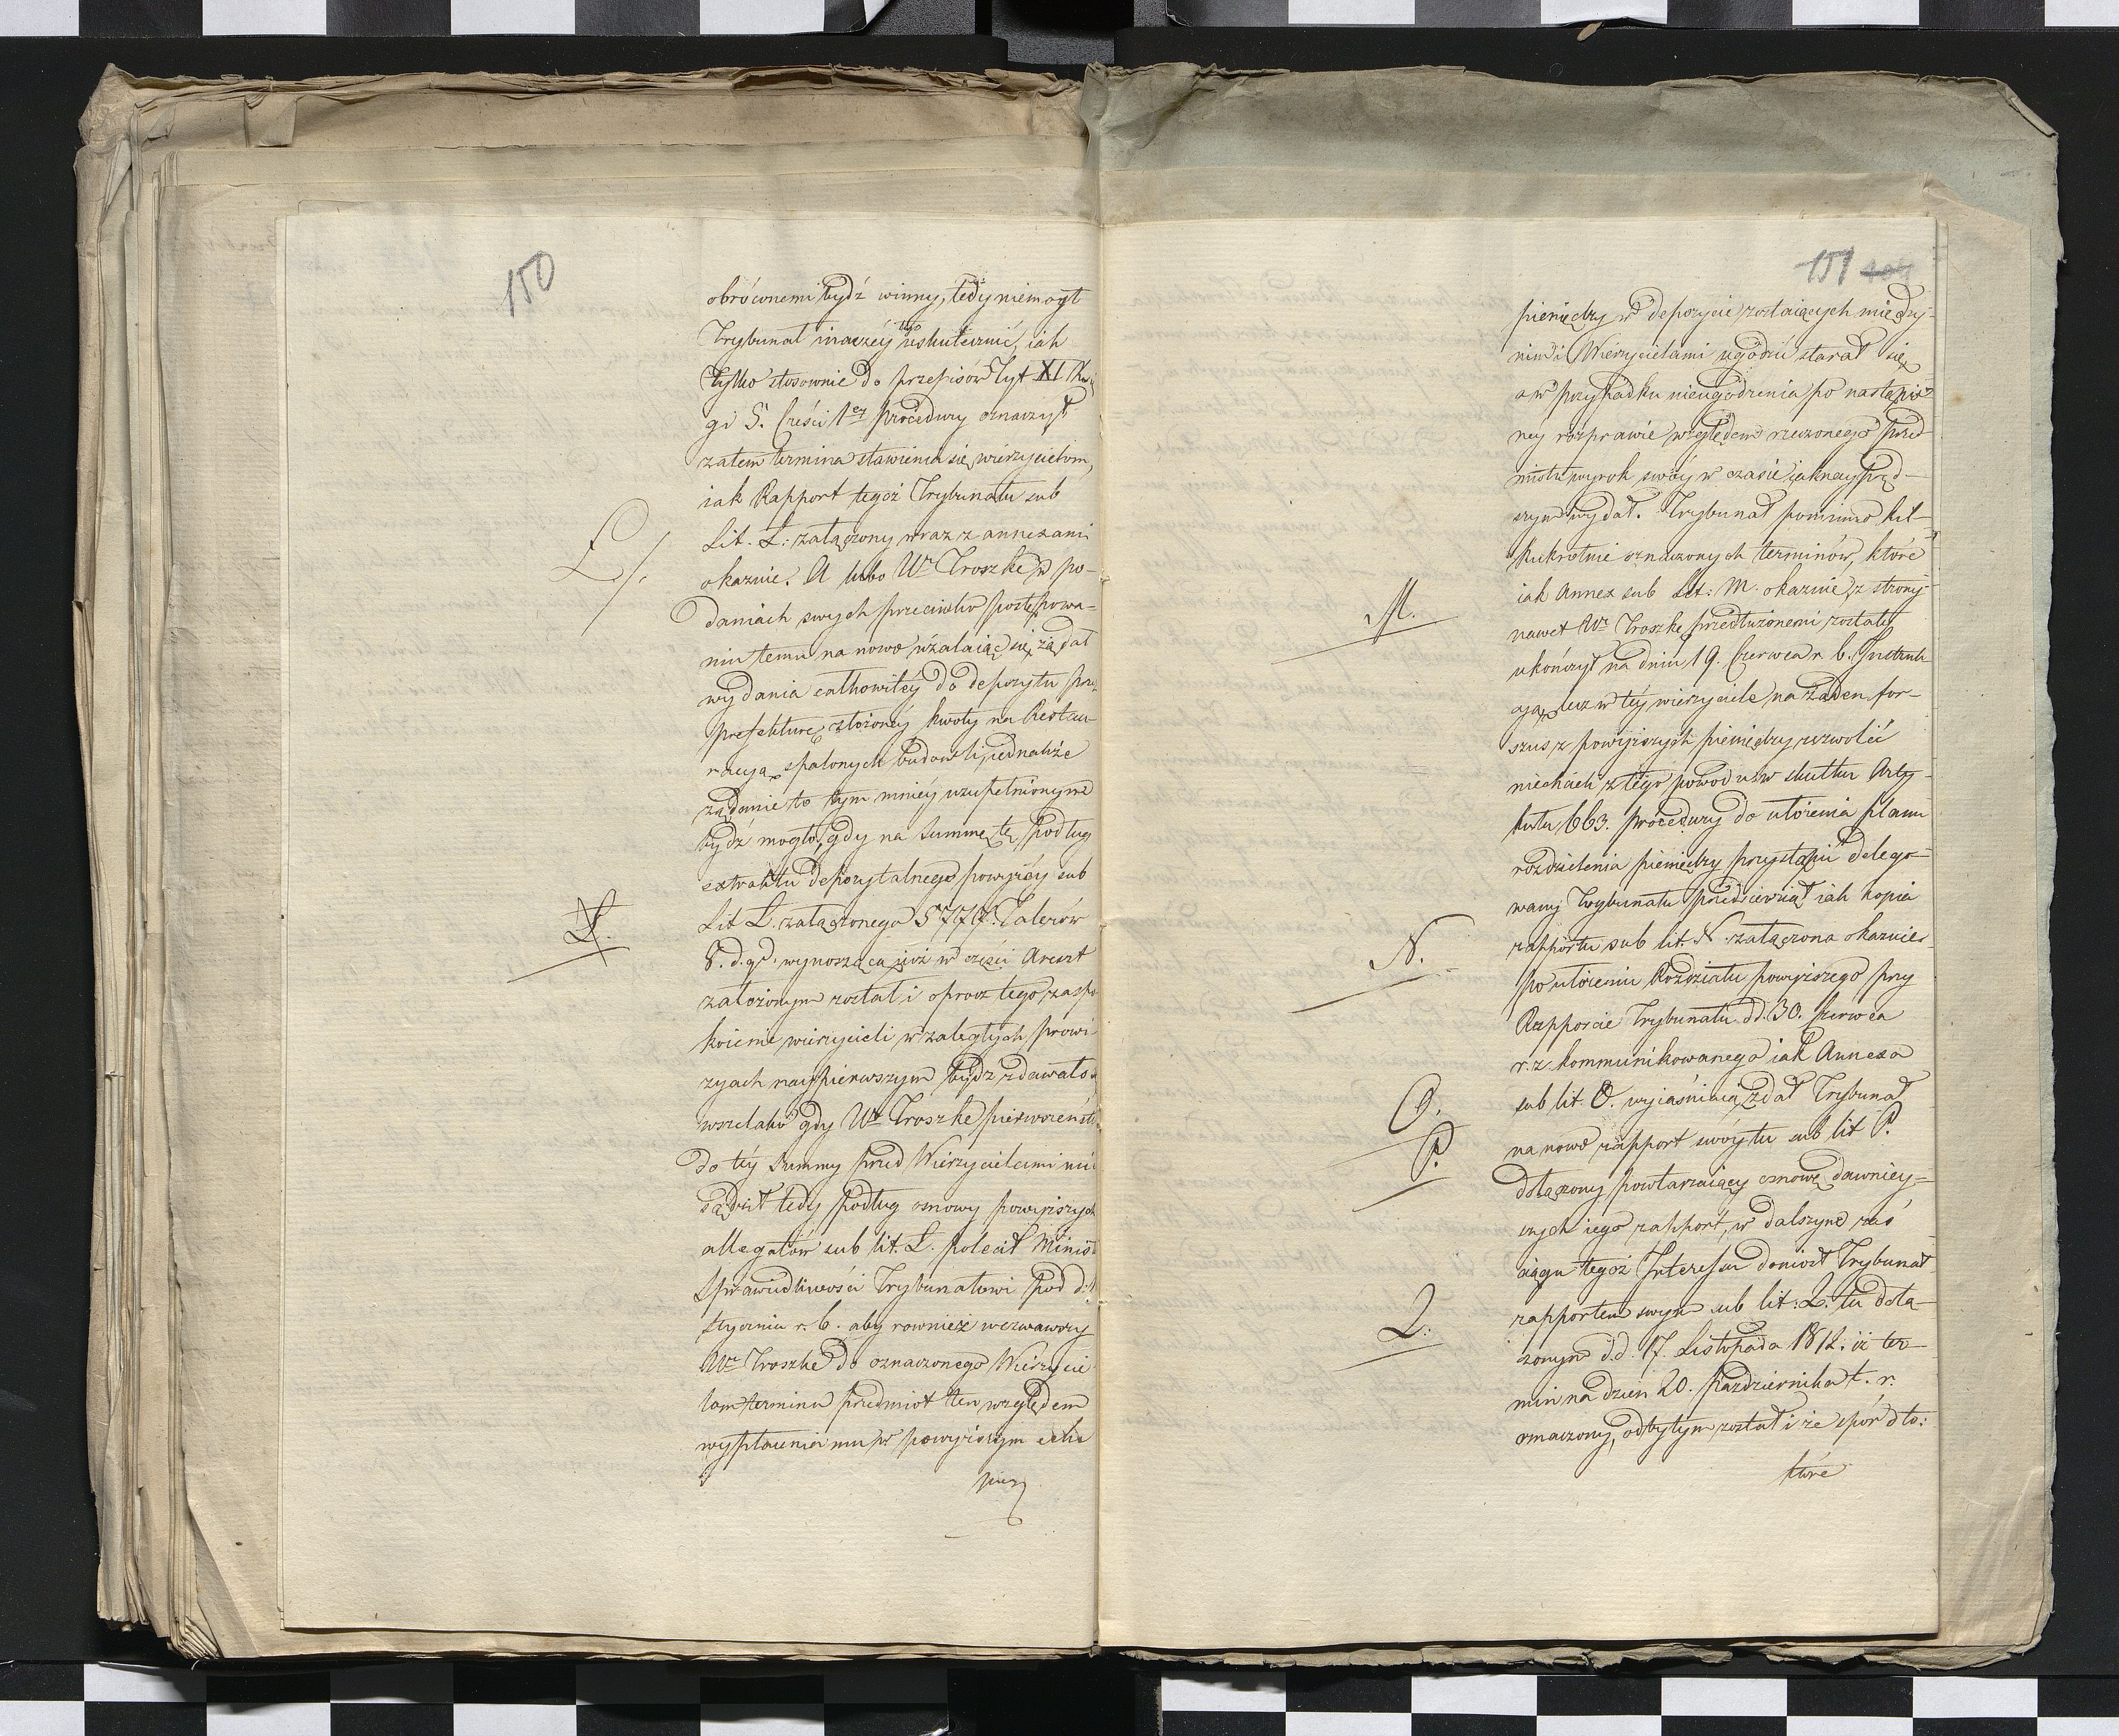 150
obrócwnemi bydź winny, tedy niemogł
Trybunał inaczéy tego uskutecznić, iak
tylko stosownie do przepisów Tyt XI Xię
gi 5. Części 1ey procedury oznaczył
zatem termina stawienia się wierzycielom,
iak Rapport tegoż Trybunału sub
L/.
Lit. L: załączony wraz z annexami
okazuie. A lubo Wr Troszke w po-
daniach swych przeciwko postępowa-
niu temu na nowo użalaiąc się żądał
wydania całkowitéy do depozytu przez
prefekturę złożonéy kwoty na Restau-
racyą spalonych budowli, iednakże
żądanie to tym mniéy uzupełnionym
bydź mogło, gdy na Summę tę podług
extraktu depozytalnego powyżéy sub
L.
Lit L. załączonego 5777. Talerów
8. d. gr. wynoszącą iuż w części Areszt
założonym został i oprocz tego zaspo
koienie wierzycieli w zaległych prowi-
zyach naypierwszym bydź zdawało
wszelako gdy Wr Troszke pierwszeńst
do téy Summy przed Wierzycielami
sądził tedy podług osnowy powyższych
allegatów sub lit. L. polecił Minis
Sprawiedliwości Trybunałowi pod d.
Stycznia r. b. aby rownież wezwawszy
Wr Troszke do oznaczonego Wierzycie
lom terminu przedmiot ten względem
wypłacenia mu w powyższym celu
pien
151
pieniędzy w depozycie zostaiących między-
nim i Wierzycielami ugódzić starał się
a w przypadku nieugodzenia po nastąpio-
néy rozprawie względem rzeczonego przed-
miotu wyrok swóy w czasie iaknayspręd-
szym wydał. Trybunał pomimo kil-
kukrotnie oznaczonych terminów, które
M.
iak Annex sub Lit: M. okazuie z strony
nawet Wr Troszke przedłużonemi zostały
ukończył na dniu 19. Czerwca r. b. Instruk-
cyą, lecz w téy wierzyciele na żaden for-
szus z powyższych pieniędzy zezwolić
niechcieli z tego powodu w skutku Arty-
kułu 663. procedury do ułożenia planu
rozdzielenia pieniędzy przystąpić delego-
wany Trybunału przedsiewziął iak kopia
N.
rapportu sub lit. N załączona okazuie.
po ułożeniu Rozdziału powyższego przy
Rapporcie Trybunału d.d. 30. Czerwca
r. z. kommunikowanego iak Annexa
O.
sub lit. O. wyiaśniaią zdał Trybunał
P.
na nowo rapport swóy tu sub lit P.
dołączony powtarzaiący osnowę dawniey-
szych iego rapport, w dalszym zaś
ciągu tegoż Interesu doniosł Trybunał
Q.
rapportem swym sub lit: Q. tu dołą-
czonym d.d. 17. Listopada 1812. iż ter-
min na dzien 20. Października t. r.
oznaczony, odbytym został i że spór dło:
które